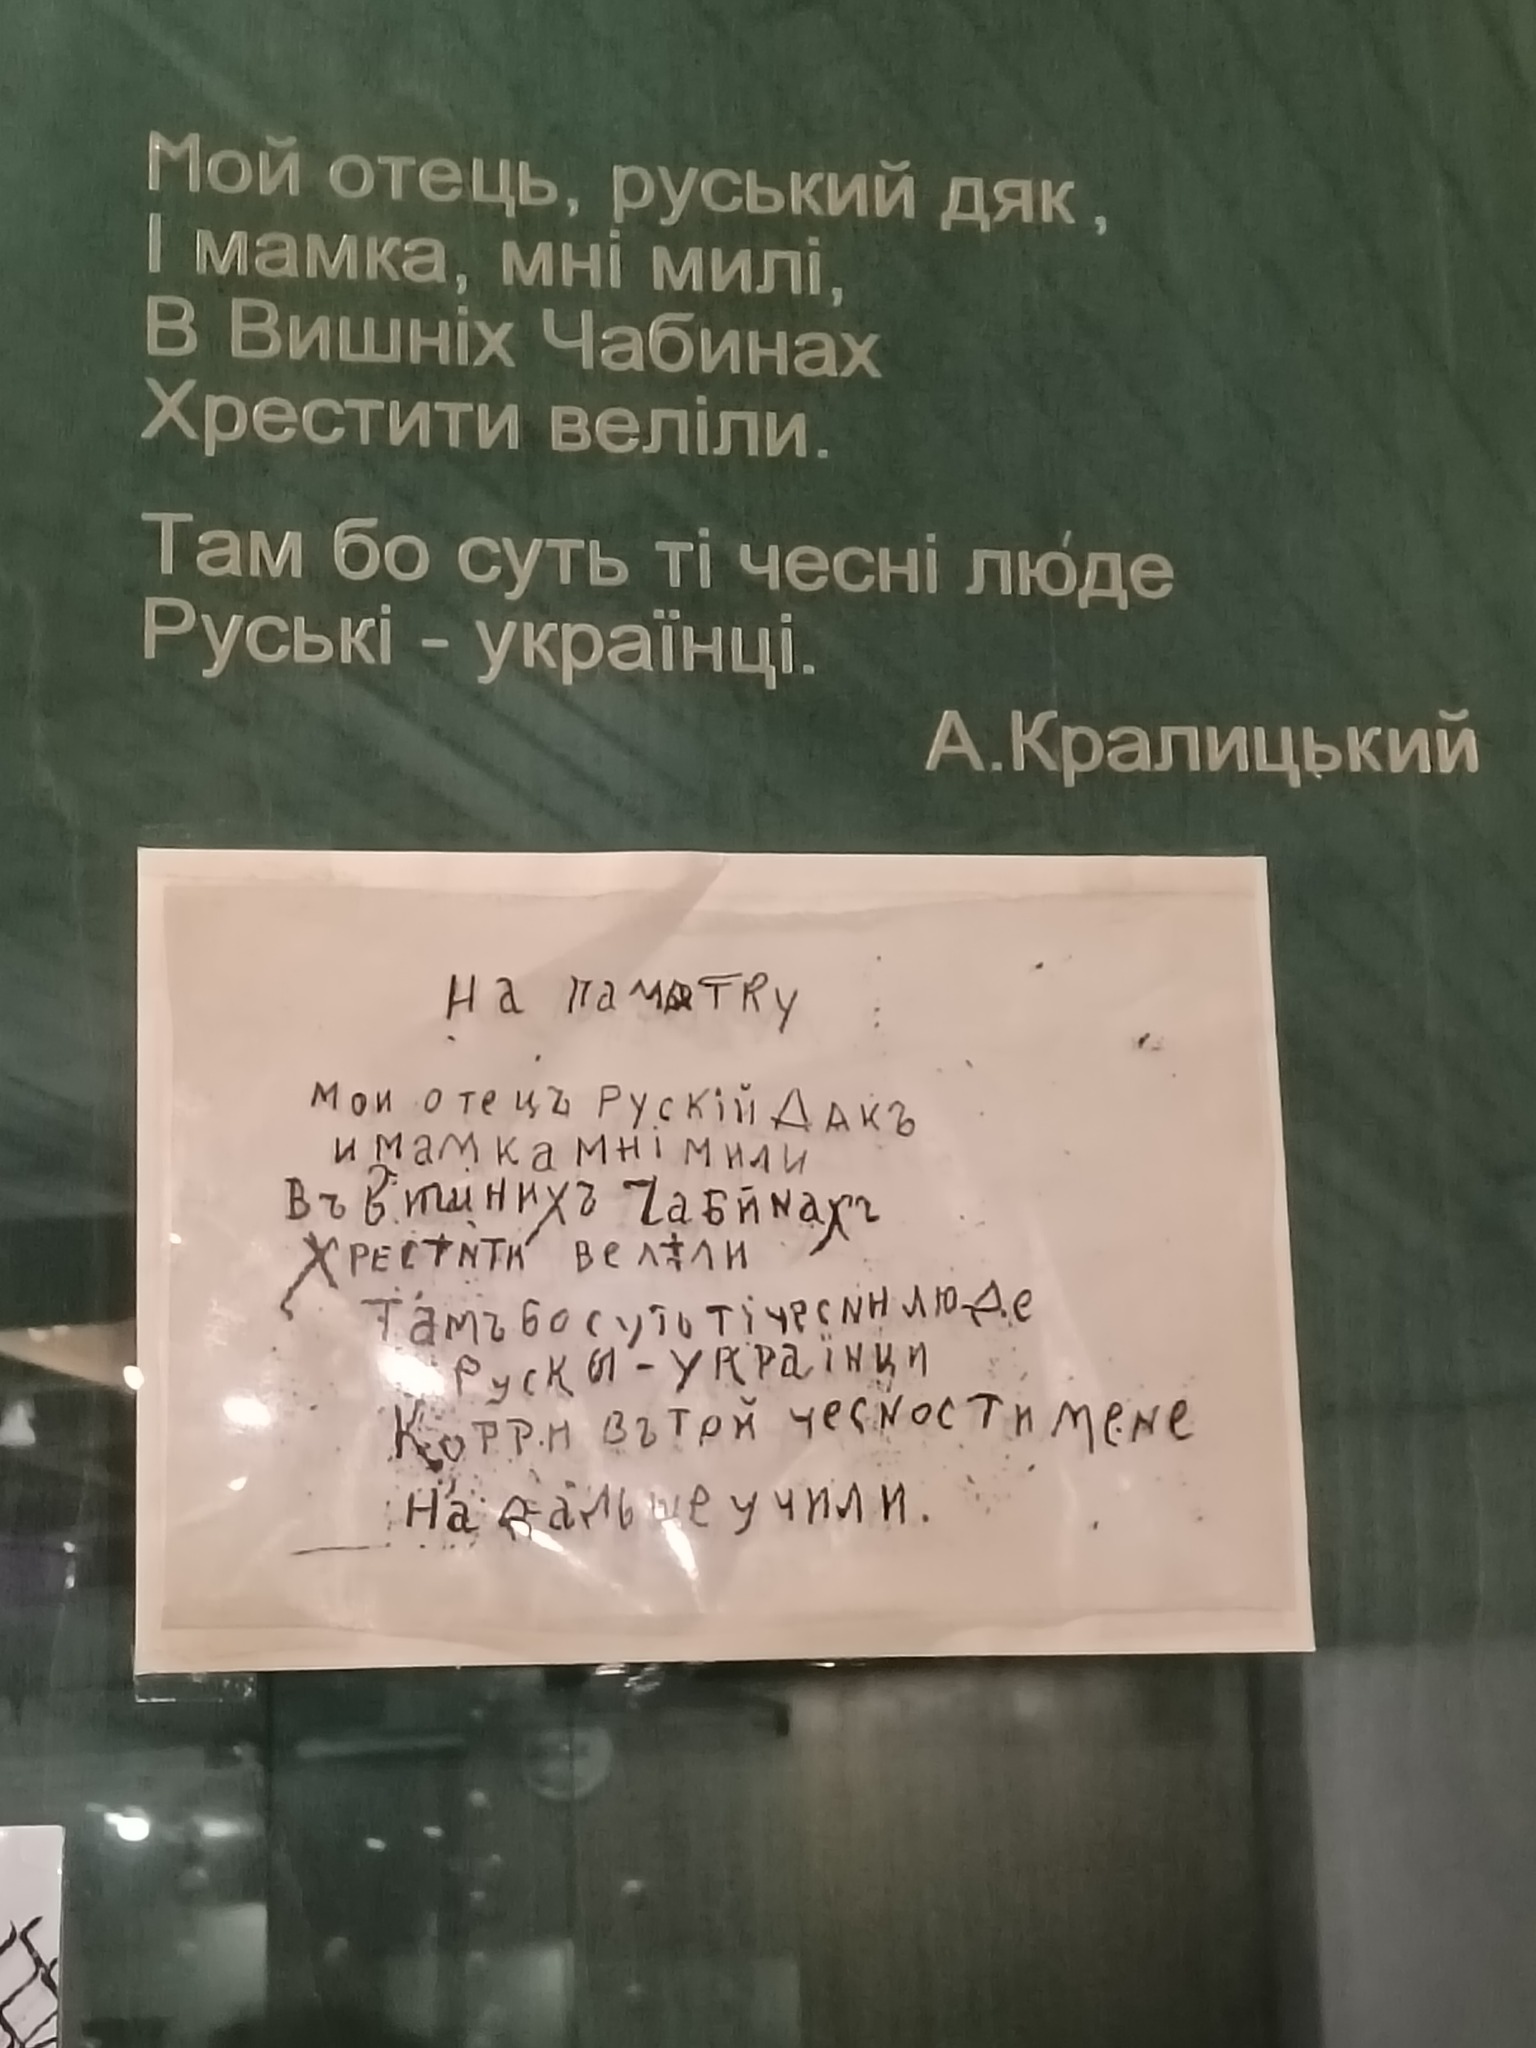 Мой отець, руський дяк,
І мамка, мні милі,
В Вишніх Чабинах
Хрестити веліли.
Там бо суть ті чесні лю́де
Руські - українці.
А.Кралицький
На памятку
мои отецъ Рускій Дакъ
и мамка мні мили
Въ Вишнихъ Чабинахъ
Хрестити велѣли
Тамъ бо суть ті чесни люде
Руски - Українци
въ той чесности мене
На дальше учили.